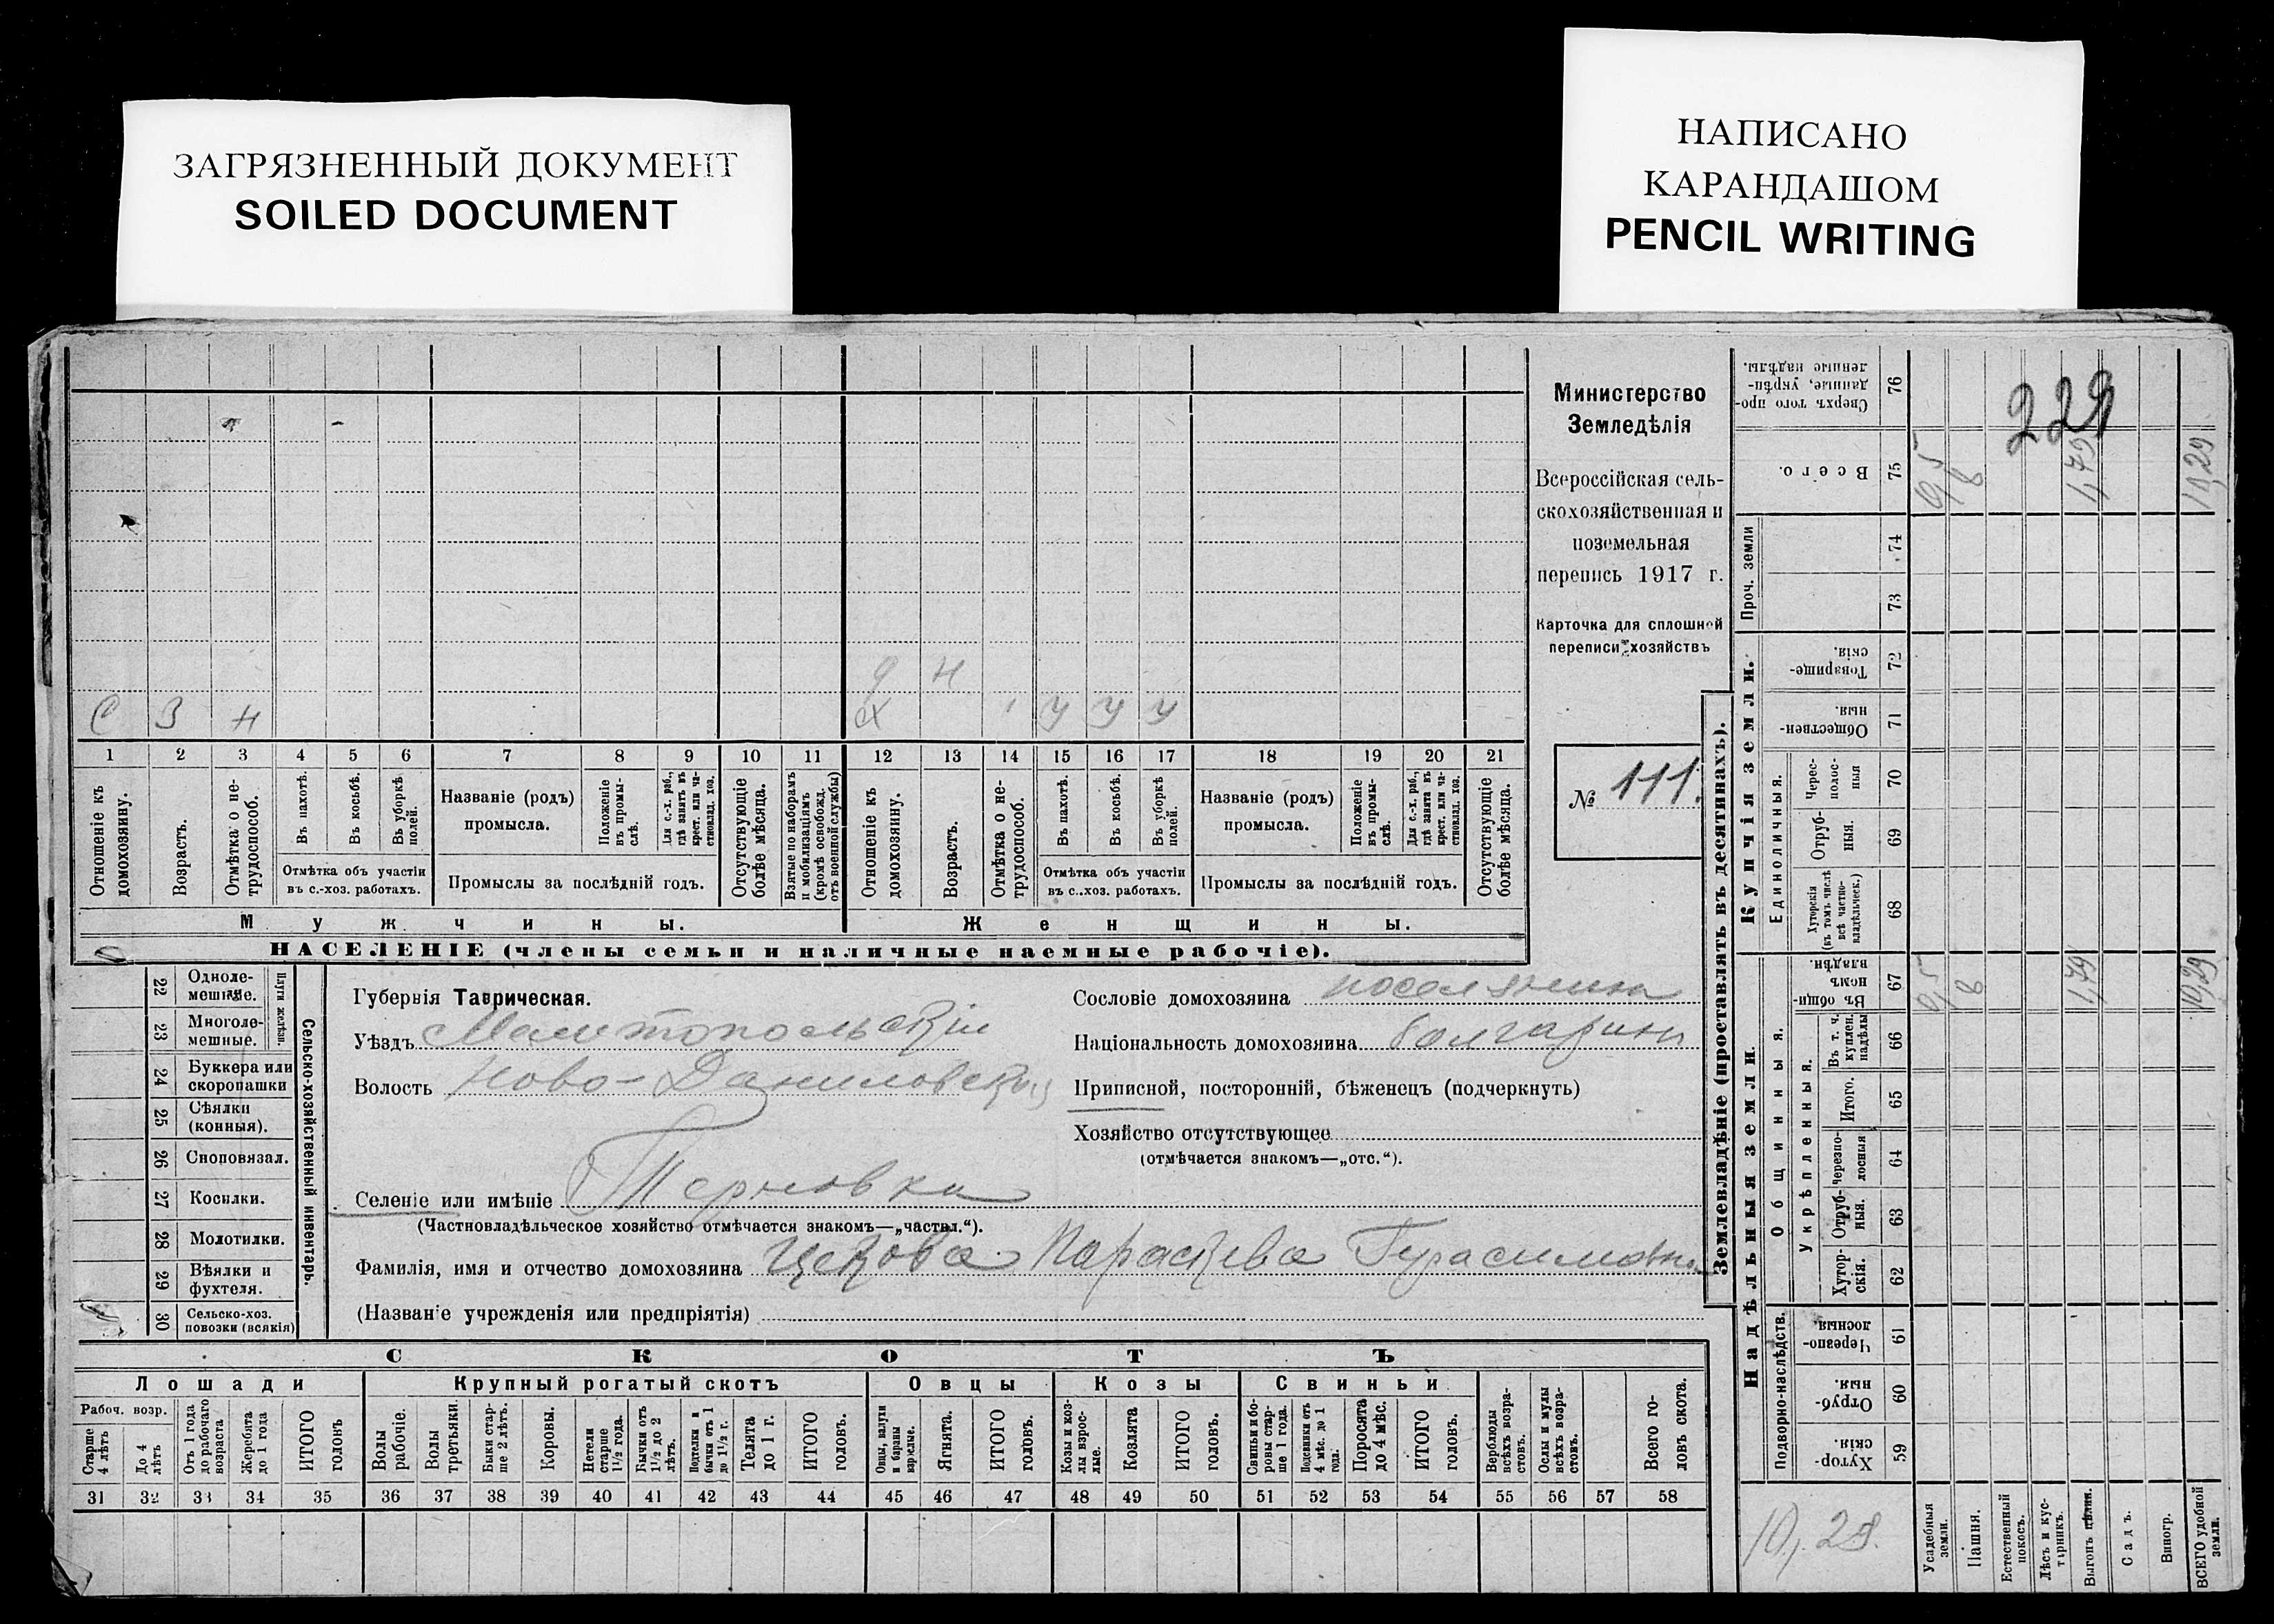 ЗАГРЯЗНЕННЫЙ ДОКУМЕНТ
SOILED DOCUMENT
НАПИСАНО
КАРАНДАШОМ
PENCIL WRITING
229
Министерство
Земледѣлія
Всероссійская сель-
скохозяйственная и
поземельная
перепись 1917 г.
Карточка для сплошной
переписи хозяйствъ
№ 111.
Д Н
С 3 н Х У У У
1 2 3 4 5 6 7 8 9 10 11 12 13 14 15 16 17 18 19 20 21
Отношеніе къ домохозяину.
Возрастъ.
Отмѣтка о не-трудоспособ.
Въ пахотѣ.
Въ косьбѣ.
Въ уборкѣ полей.
Отмѣтка объ участіи
въ с.-хоз. работахъ.
Названіе (родъ)
промысла.
Положеніе въ промы-слѣ.
Для с.-х. раб., гдѣ занятъ въ крест. или ча-стновлад. хоз.
Промыслы за послѣдній годъ.
Отсутствующіе болѣе мѣсяца.
Взятые по наборамъ и мобилизаціямъ (кромѣ освобожд. отъ военной службы)
Отношеніе къ домохозяину.
Возрастъ.
Отмѣтка о не-трудоспособ.
Въ пахотѣ.
Въ косьбѣ.
Въ уборкѣ полей.
Отмѣтка объ участіи
въ с.-хоз. работахъ.
Названіе (родъ)
промысла.
Положеніе въ промы-слѣ.
Для с.-х. раб., гдѣ занята въ крест. или ча-стновлад. хоз.
Промыслы за послѣдній годъ.
Отсутствующіе болѣе мѣсяца.
Мужчины. Женщины.
НАСЕЛЕНІЕ (члены семьи и наличные наемные рабочіе).
22 Одноле-мешные.
Плуги желѣзн.
23 Многоле-мешные.
24 Буккера или скоропашки
25 Сѣялки (конныя).
26 Сноповязал.
27 Косилки.
28 Молотилки.
29 Вѣялки и фухтеля.
30 Сельско-хоз. повозки (всякія)
Сельско-хозяйственный инвентарь.
Губернія Таврическая.
Уѣздъ Мелитопольскій
Волость Ново-Даниловская
Селеніе или имѣніе Терновка
(Частновладѣльческое хозяйство отмѣчается знакомъ—„частвл.“).
Фамилія, имя и отчество домохозяина Цекова Параскева Гурасимовна
(Названіе учрежденія или предпріятія)
Сословіе домохозяина поселянинъ
Національность домохозяина болгаринъ
Приписной, посторонній, бѣженецъ (подчеркнуть)
Хозяйство отсутствующее
(отмѣчается знакомъ—„отс.“).
СКОТЪ
Лошади Крупный рогатый скотъ Овцы Козы Свиньи
Рабоч. возр.
Старше 4 лѣтъ
До 4 лѣтъ
Отъ 1 года до рабочаго возраста
Жеребята до 1 года
ИТОГО головъ
Волы рабочіе.
Волы третьяки.
Быки стар-ше 2 лѣтъ.
Коровы.
Нетели старше 1½ года.
Бычки отъ 1½ до 2 лѣтъ.
Подтелки и бычки отъ 1 до 1½ г.
Телята до 1 г.
ИТОГО головъ.
Овцы, валухи и бараны взрослые.
Ягнята.
ИТОГО головъ.
Козы и коз-лы взрос-лые.
Козлята
ИТОГО головъ.
Свиньи и бо-ровы стар-ше 1 года.
Подсвинки отъ 4 мѣс. до 1 года.
Поросята до 4 мѣс.
ИТОГО головъ.
Верблюды всѣхъ возра-стовъ.
Ослы и мулы всѣхъ возра-стовъ.
Всего го-ловъ скота.
31 32 33 34 35 36 37 38 39 40 41 42 43 44 45 46 47 48 49 50 51 52 53 54 55 56 57 58
Землевладѣніе (проставлять въ десятинахъ).
Купчія земли.
Проч. земли
Единоличныя.
Надѣльныя земли.
Общинныя.
Укрѣпленныя.
Подворно-наслѣдств.
76 Сверхъ того про-данные, укрѣп-ленные надѣлы.
75 Всего. 0,5 8 1,79 10,29
74
73
72 Товарище-скія.
71 Обществен-ныя.
70 Черес-полос-ныя
69 Отруб-ныя.
68 Хуторскія (въ томъ числѣ всѣ частно-владѣльческ.)
67 Въ общи-номъ владѣн. 0,5 8 1,79 10,29
66 Въ т. ч. куплен. надѣлы
65 Итого.
64 Черезпо-лосныя
63 Отруб-ныя.
62 Хутор-скія.
61 Черезпо-лосныя.
60 Отруб-ныя.
59 Хутор-скія.
10,29.
Усадебныя земли.
Пашня.
Естественный покосъ.
Лѣсъ и кус-тарникъ.
Выгонъ цѣлин.
Садъ.
Виногр.
ВСЕГО удобной земли.